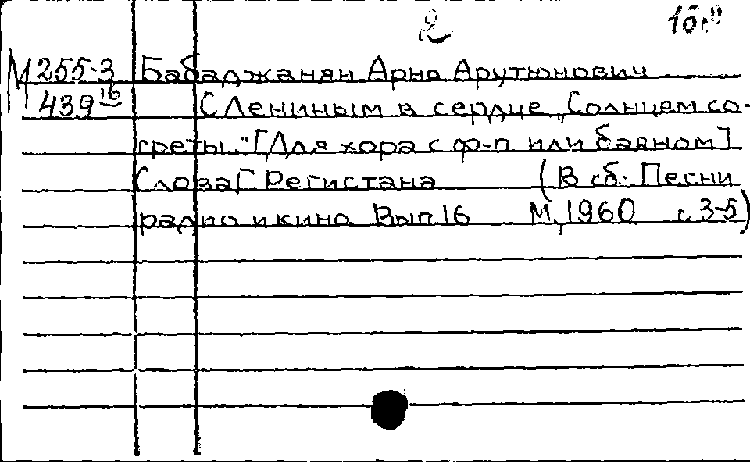 2
М 255-3 Бабаджанян Арно Арутюнович
439 16 С Лениным в сердце. „Солнцем со-
греты..." [Для хора с ф-п или баяном]
Слова Г. Регистана (В сб. Песни
радио и кино Вып 16 М, 1960 с. 3-5)